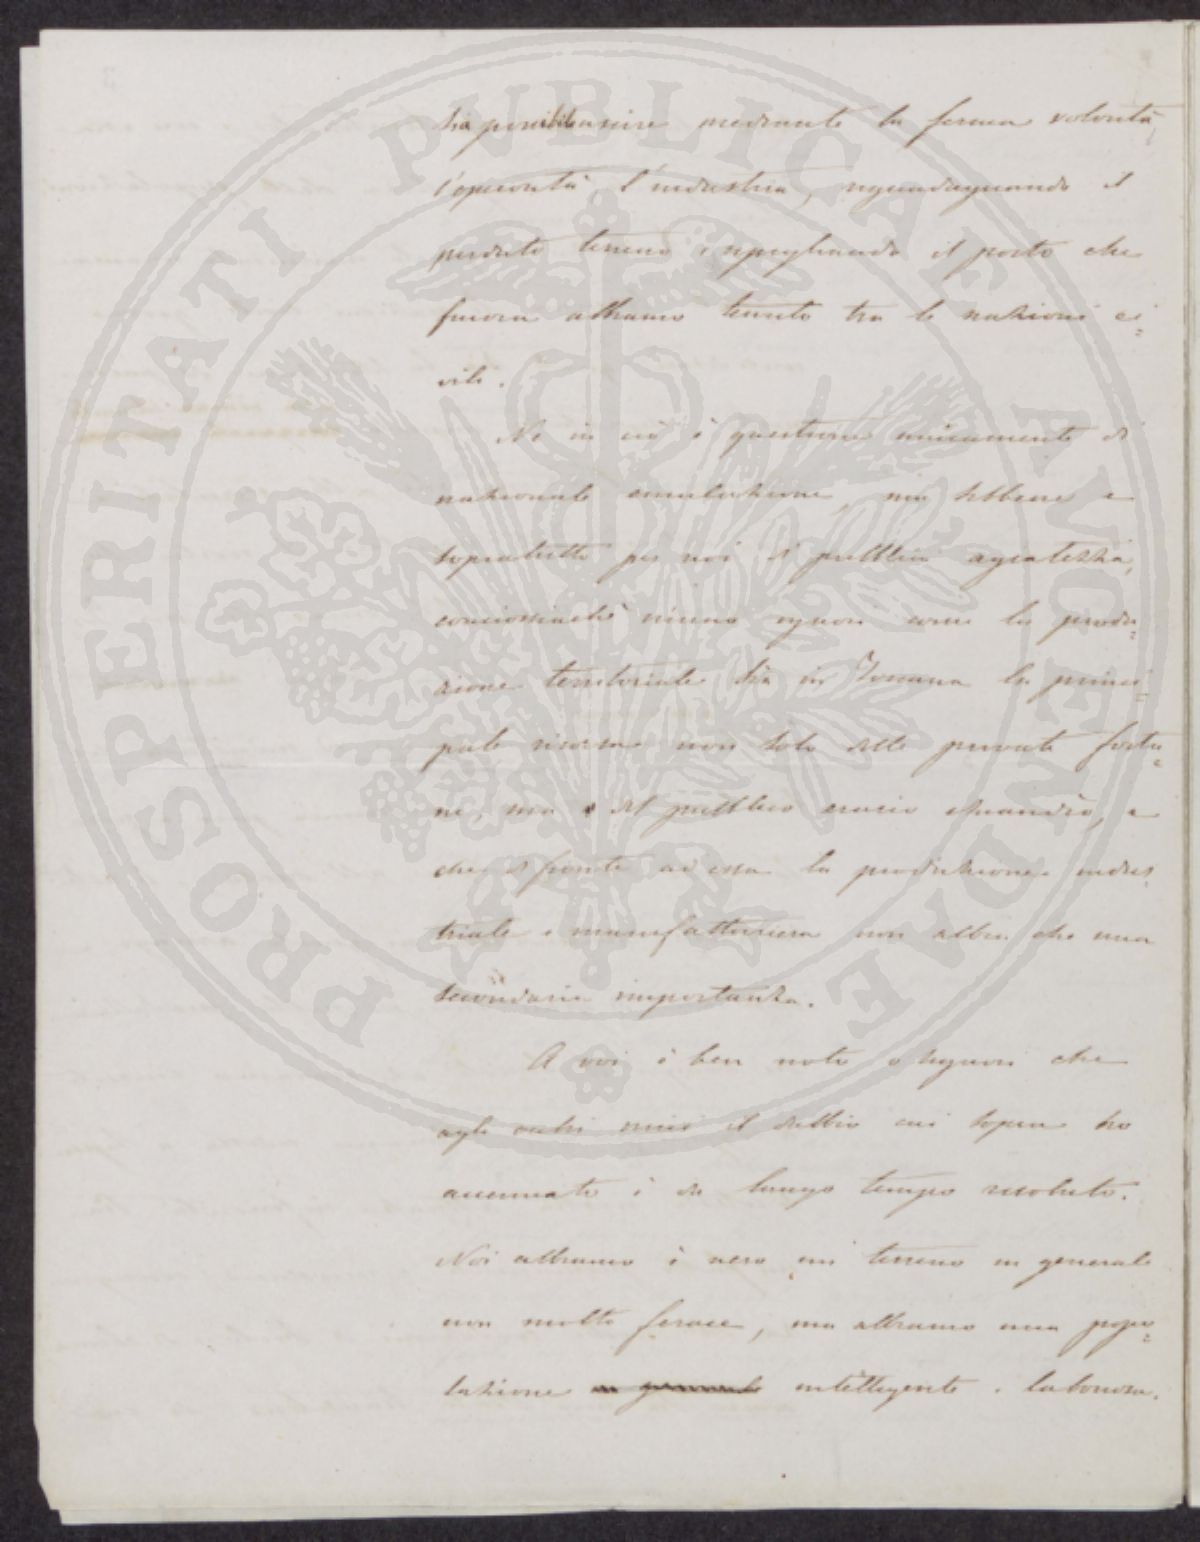 sia possibile uscire mediante la ferma volontà
l'operosità, l'industria, riguadagnando il
perduto terreno e ripigliando il posto che
finora abbiamo tenuto tra le nazioni ci=
vili.
Nè in ciò è questione unicamente di
nazionale emulazione, ma sebbene e
sopratutto per noi di pubblica agiatezza,
conciossiachè niuno ignori come la produ=
zione territoriale sia in Toscana la princi=
pale risorsa non solo delle private fortu=
ne, ma del pubblico erario eziandio, e
che di fronte ad essa la produzione indus=
triale e manufatturiera non abbia che una
secondaria importanza.
A voi è ben noto o signori che
agli occhi miei il dubbio cui sopra ho
accennato è da lungo tempo resoluto.
Noi abbiamo è vero un terreno in generale
non molto ferace, ma abbiamo una popo=
lazione in generale intelligente e laboriosa.
PROSPERITATI PUBLICAE AUGENDAE